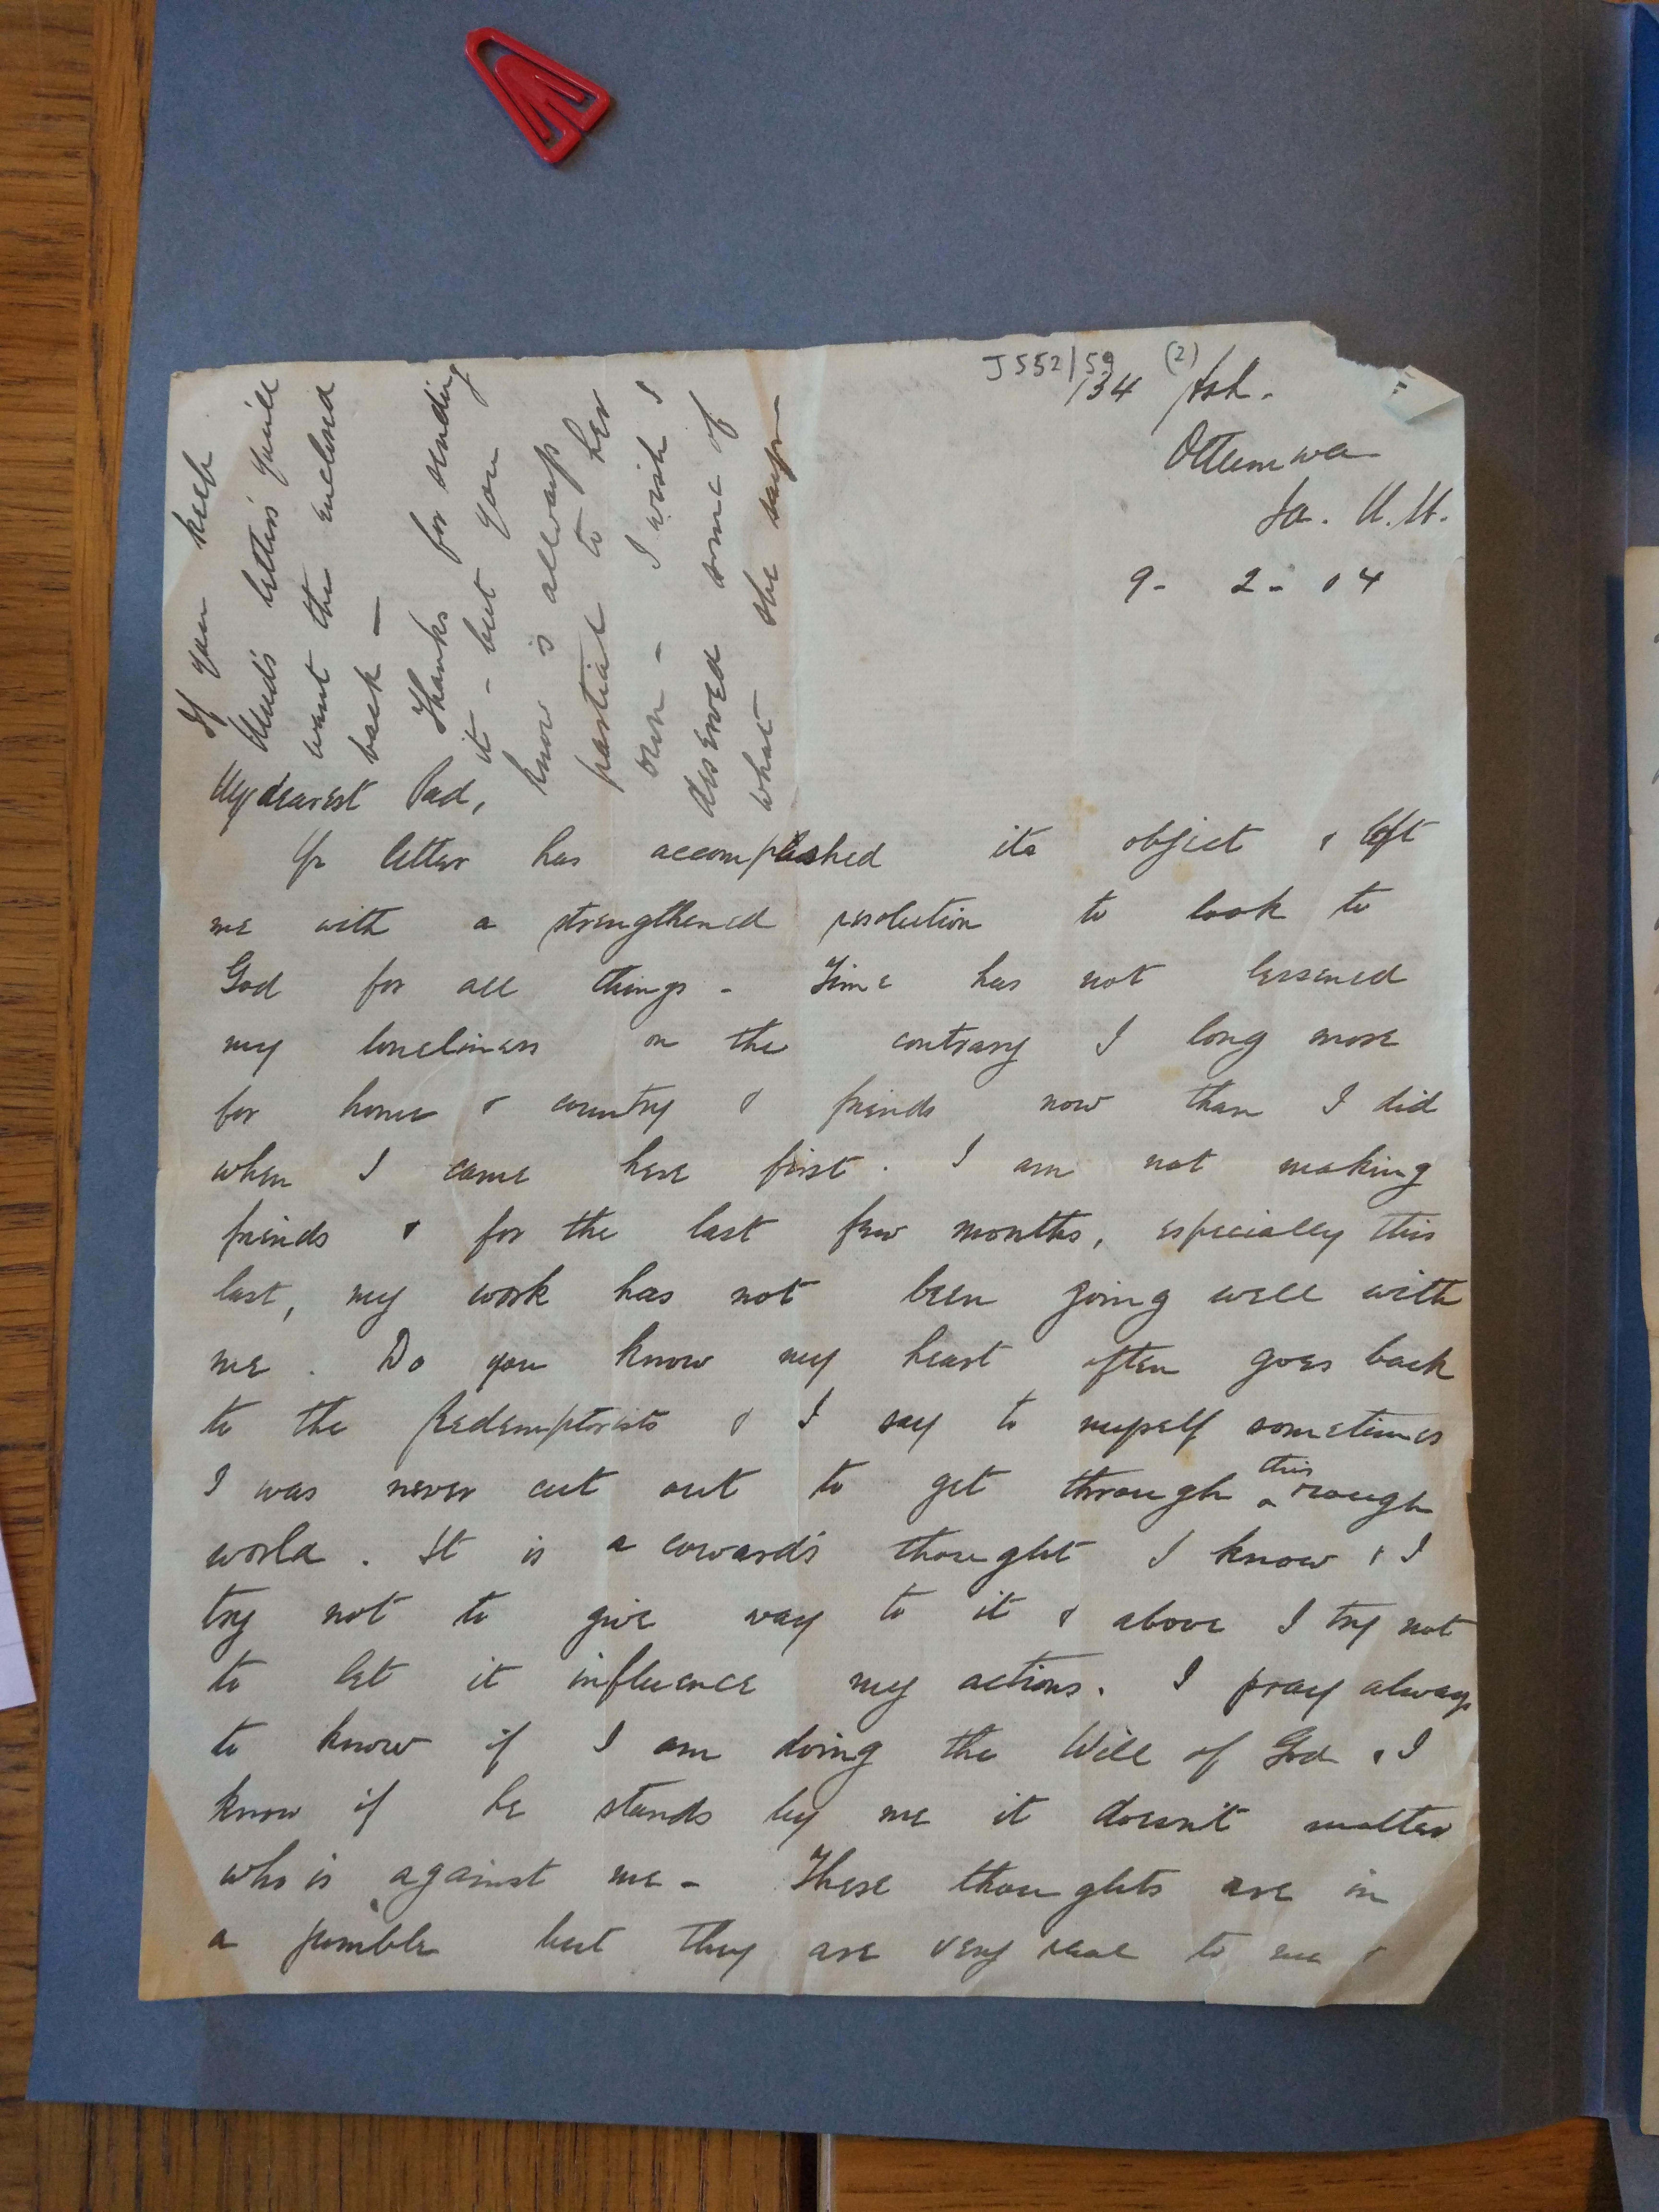 J552/59 (2)
134 Ash.
Ottumwa
Ia. U.S.
9 - 2 - 04
If you keep
Maud's letters you'll
want the enclosed
back —
Thanks for sending
it - but you
know is allways
partial to her
own - I wish I
deserved some of
what she says
My dearest Pad,
Yr letter has accomplished its object & left
me with a strengthened resolution to look to
God for all things - Time has not lessened
my loneliness on the contrary I long more
for home & country & friends now than I did
when I came here first. I am not making
friends & for the last few months, especially this
last, my work has not been going well with
me. Do you know my heart often goes back
to the Redemptorists & I say to myself sometimes
I was never cut out to get through this rough
world. It is a coward's thought I know & I
try not to give way to it & above I try not
to let it influence my actions. I pray always
to know if I am doing the Will of God & I
know if he stands by me it doesn't matter
who is against me - These thoughts are in
a jumble but they are very real to me &